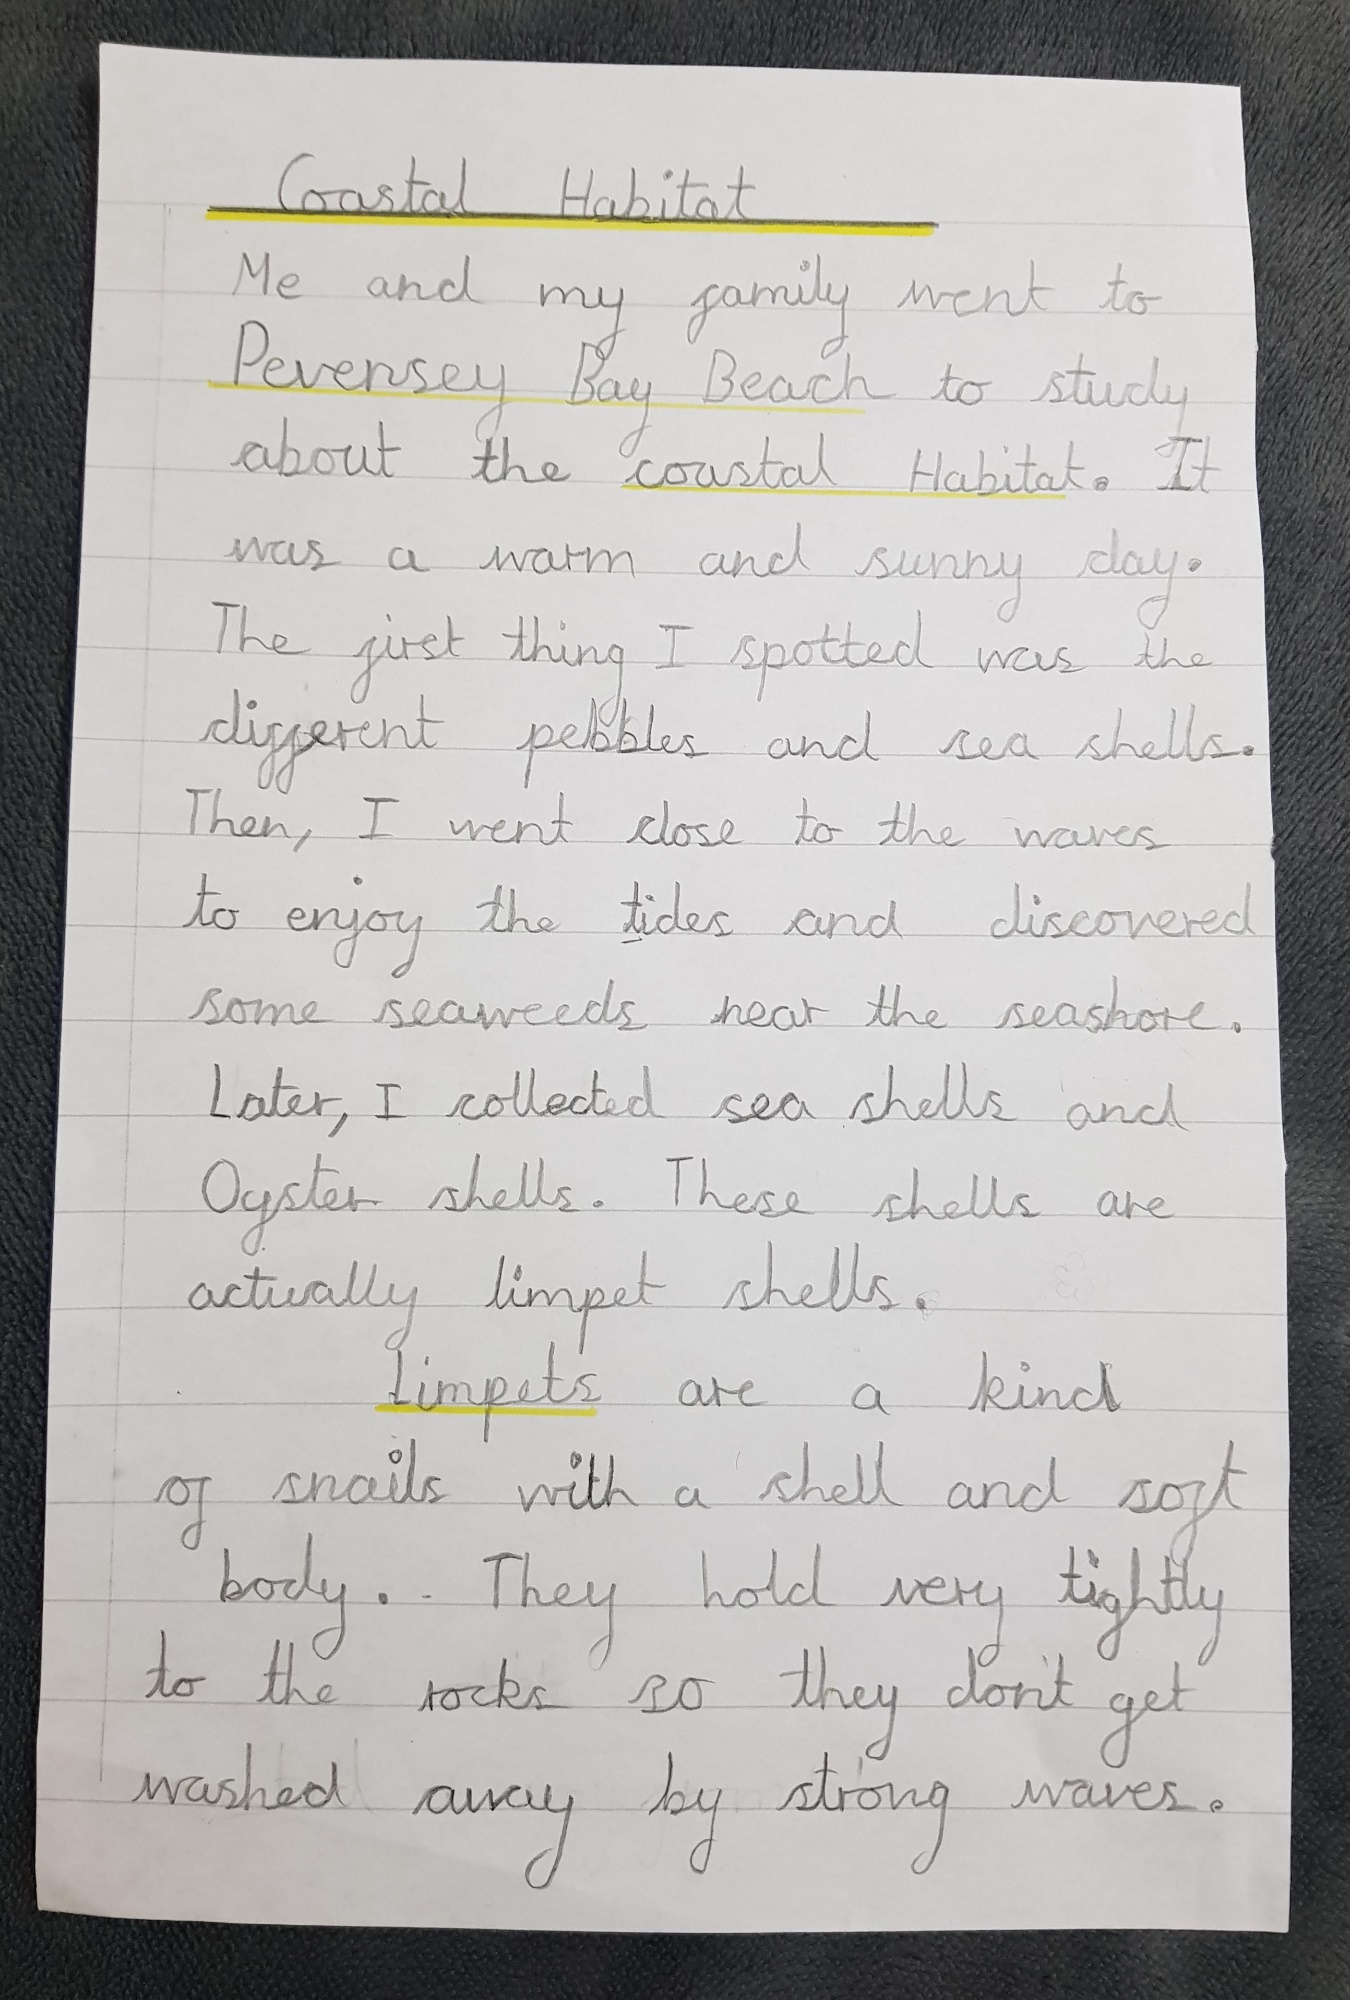 Coastal Habitat
Me and my family went to
Pevensey Bay Beach to study
about the coastal Habitat. It
was a warm and sunny day.
The first thing I spotted was the
different pebbles and sea shells.
Then, I went close to the waves
to enjoy the tides and discovered
some seaweeds near the seashore.
Later, I collected sea shells and
Oyster shells. These shells are
actually limpet shells.
Limpets are a kind
of snails with a shell and soft
body. They hold very tightly
to the rocks so they don't get
washed away by strong waves.